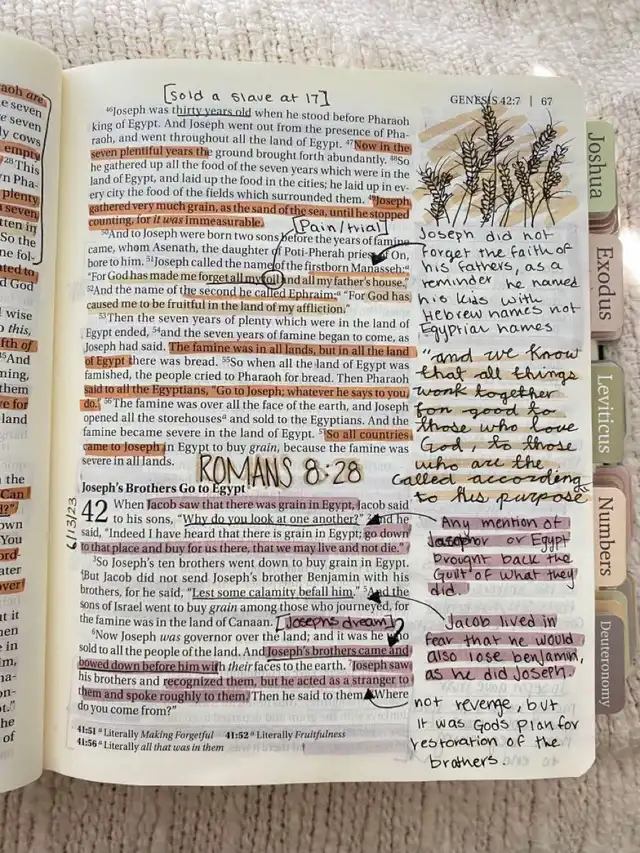 [sold a slave at 17]
GENESIS 42:7 | 67
46Joseph was thirty years old when he stood before Pharaoh
king of Egypt. And Joseph went out from the presence of Pha-
raoh, and went throughout all the land of Egypt. 47Now in the
seven plentiful years the ground brought forth abundantly. 48So
he gathered up all the food of the seven years which were in the
land of Egypt, and laid up the food in the cities; he laid up in ev-
ery city the food of the fields which surrounded them. 49Joseph
gathered very much grain, as the sand of the sea, until he stopped
counting, for it was immeasurable.
[Pain/trial]
50And to Joseph were born two sons before the years of famine
came, whom Asenath, the daughter of Poti-Pherah priest of On,
bore to him. 51Joseph called the name of the firstborn Manasseh:a
“For God has made me forget all my toil and all my father’s house.”
52And the name of the second he called Ephraim:a “For God has
caused me to be fruitful in the land of my affliction.”
53Then the seven years of plenty which were in the land of
Egypt ended, 54and the seven years of famine began to come, as
Joseph had said. The famine was in all lands, but in all the land
of Egypt there was bread. 55So when all the land of Egypt was
famished, the people cried to Pharaoh for bread. Then Pharaoh
said to all the Egyptians, “Go to Joseph; whatever he says to you,
do.” 56The famine was over all the face of the earth, and Joseph
opened all the storehousesa and sold to the Egyptians. And the
famine became severe in the land of Egypt. 57So all countries
came to Joseph in Egypt to buy grain, because the famine was
severe in all lands.
ROMANS 8:28
Joseph’s Brothers Go to Egypt
6/13/23
42 When Jacob saw that there was grain in Egypt, Jacob said
to his sons, “Why do you look at one another?” 2And he
said, “Indeed I have heard that there is grain in Egypt; go down
to that place and buy for us there, that we may live and not die.”
3So Joseph’s ten brothers went down to buy grain in Egypt.
4But Jacob did not send Joseph’s brother Benjamin with his
brothers, for he said, “Lest some calamity befall him.” 5And the
sons of Israel went to buy grain among those who journeyed, for
the famine was in the land of Canaan.
[Josephs dream]
6Now Joseph was governor over the land; and it was he who
sold to all the people of the land. And Joseph’s brothers came and
bowed down before him with their faces to the earth. 7Joseph saw
his brothers and recognized them, but he acted as a stranger to
them and spoke roughly to them. Then he said to them, “Where
do you come from?”
41:51 a Literally Making Forgetful 41:52 a Literally Fruitfulness
41:56 a Literally all that was in them
Joseph did not
forget the faith of
his fathers, as a
reminder he named
his kids with
Hebrew names not
Egyptian names
“and we know
that all things
work together
for good to
those who love
God, to those
who are the
called according
to His purpose
Any mention of
Joseph or Egypt
brought back the
Guilt of what they
did.
Jacob lived in
fear that he would
also lose benjamin,
as he did Joseph.
not revenge, but
it was Gods plan for
restoration of the
brothers.
Joshua
Exodus
Leviticus
Numbers
Deuteronomy